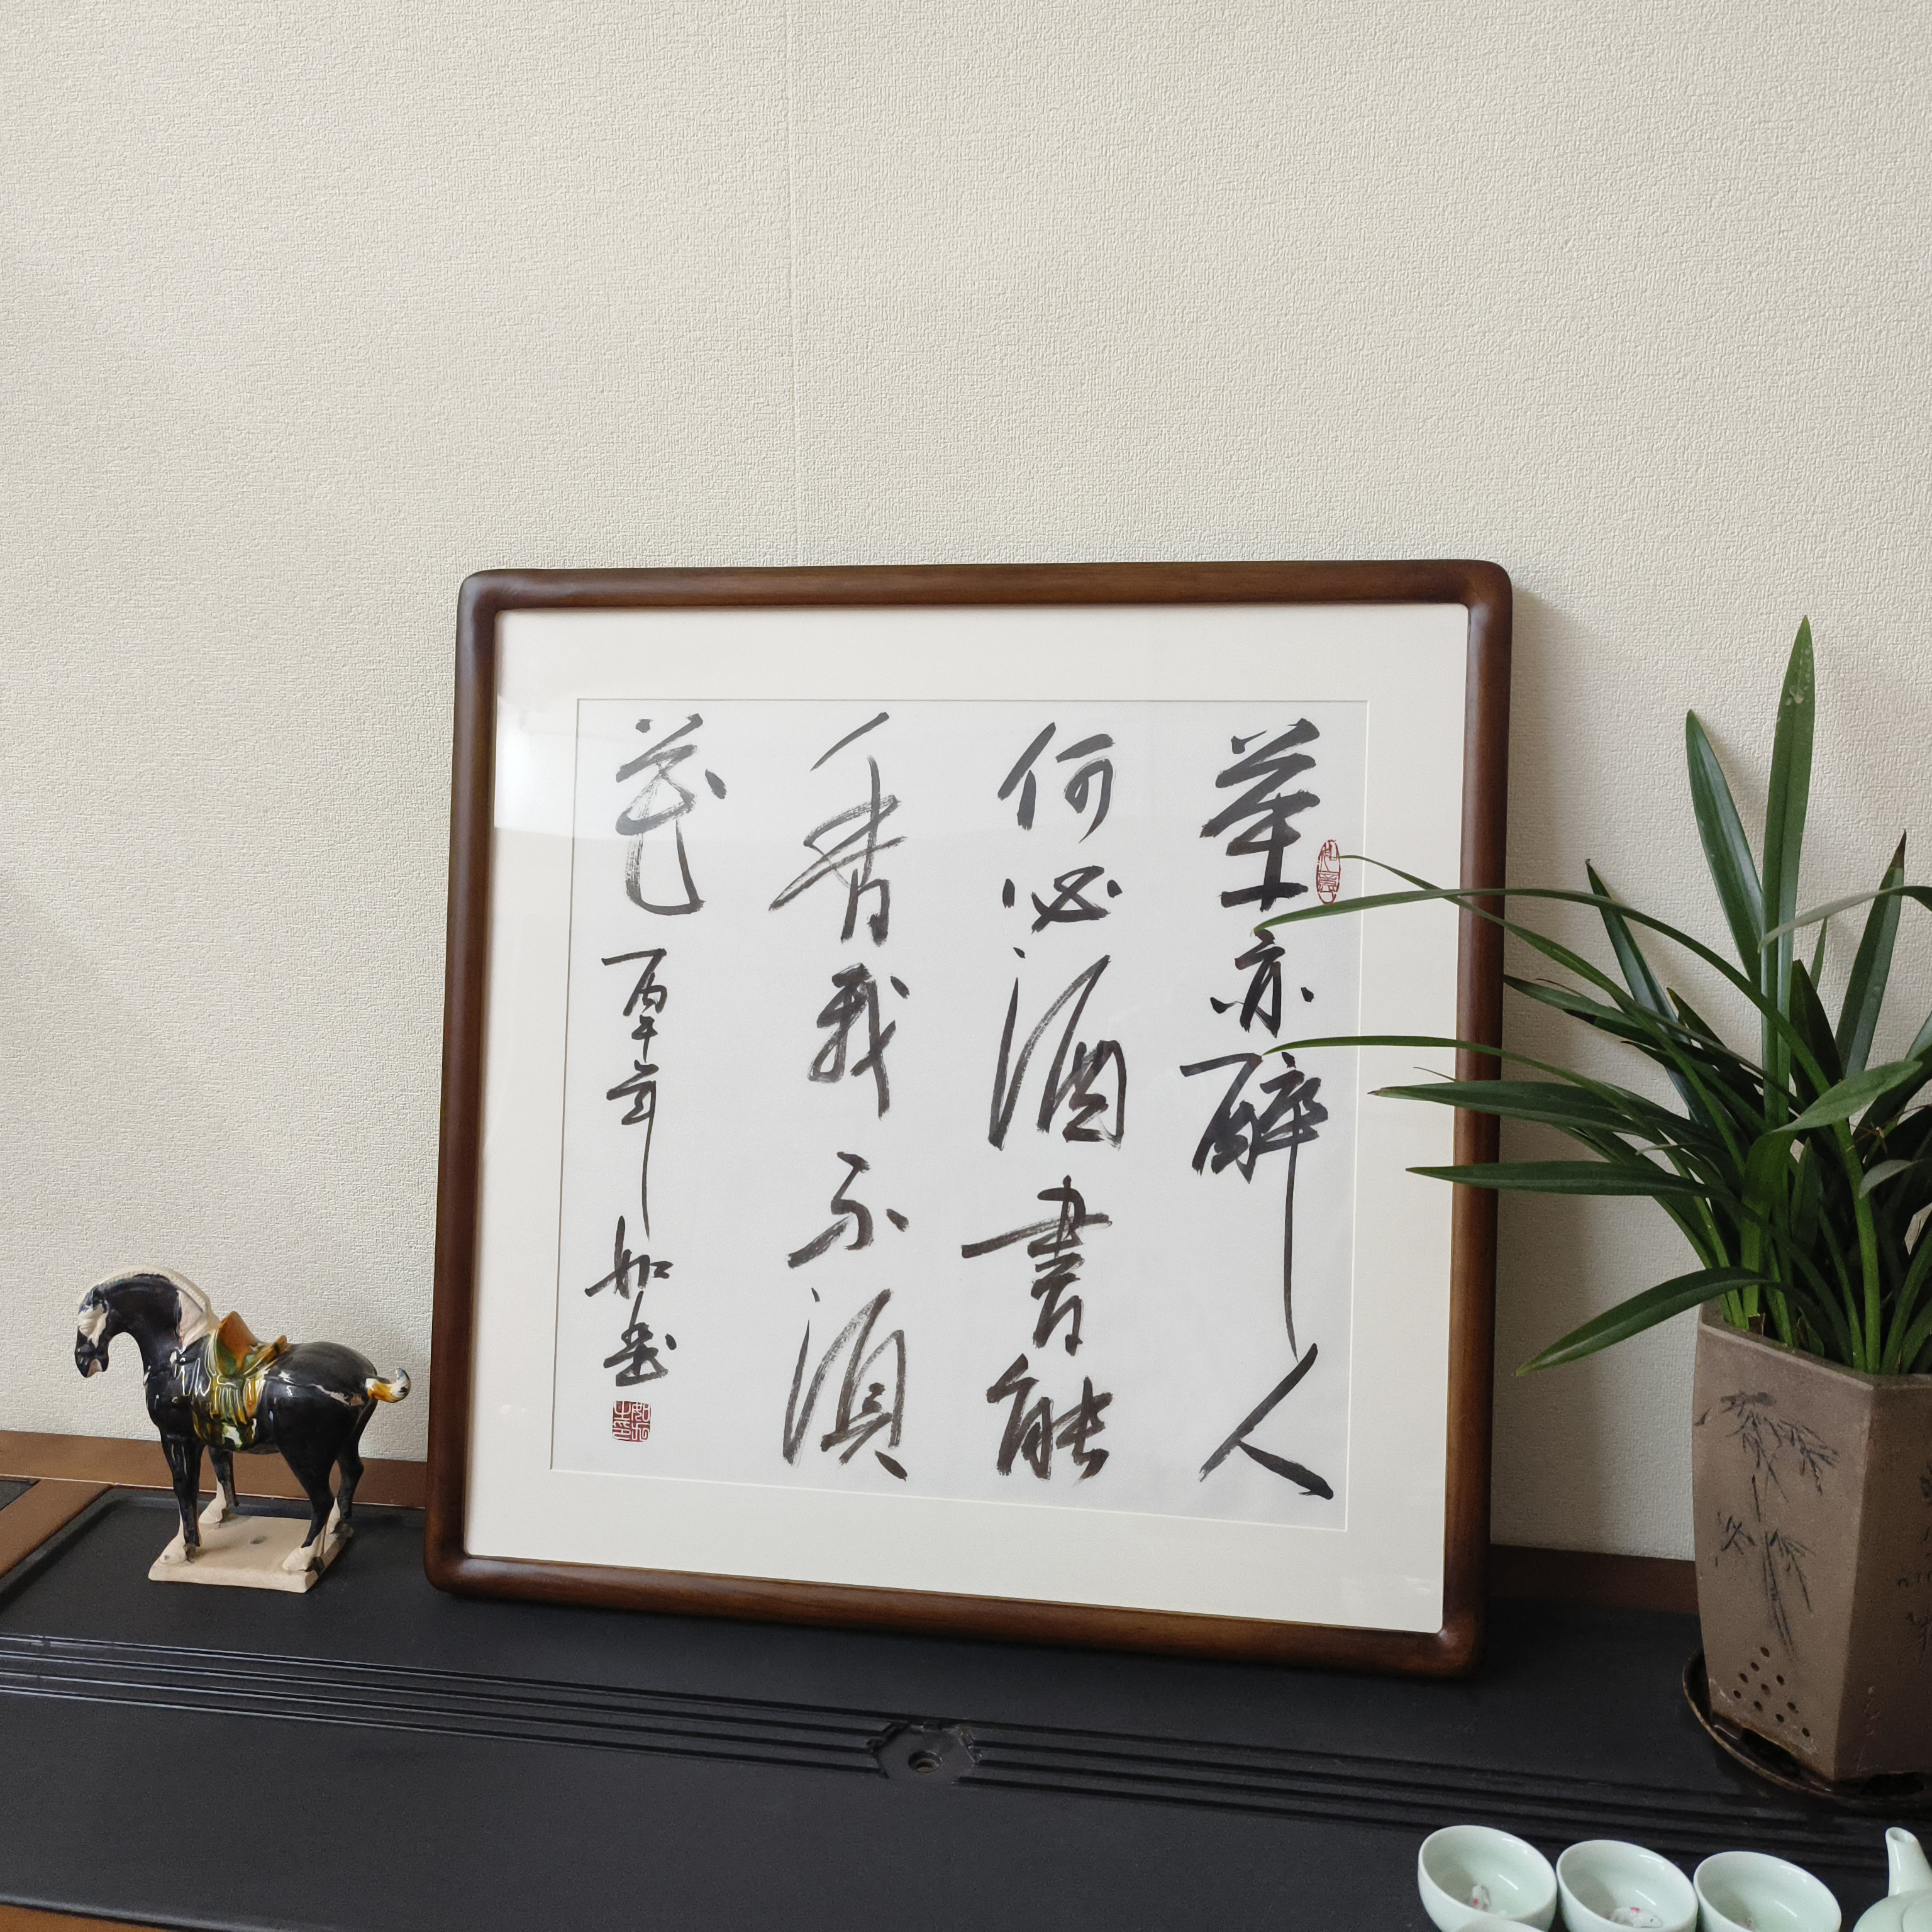 茶亦醉人
何必酒書能
香我不須
花
丙午年 如岳